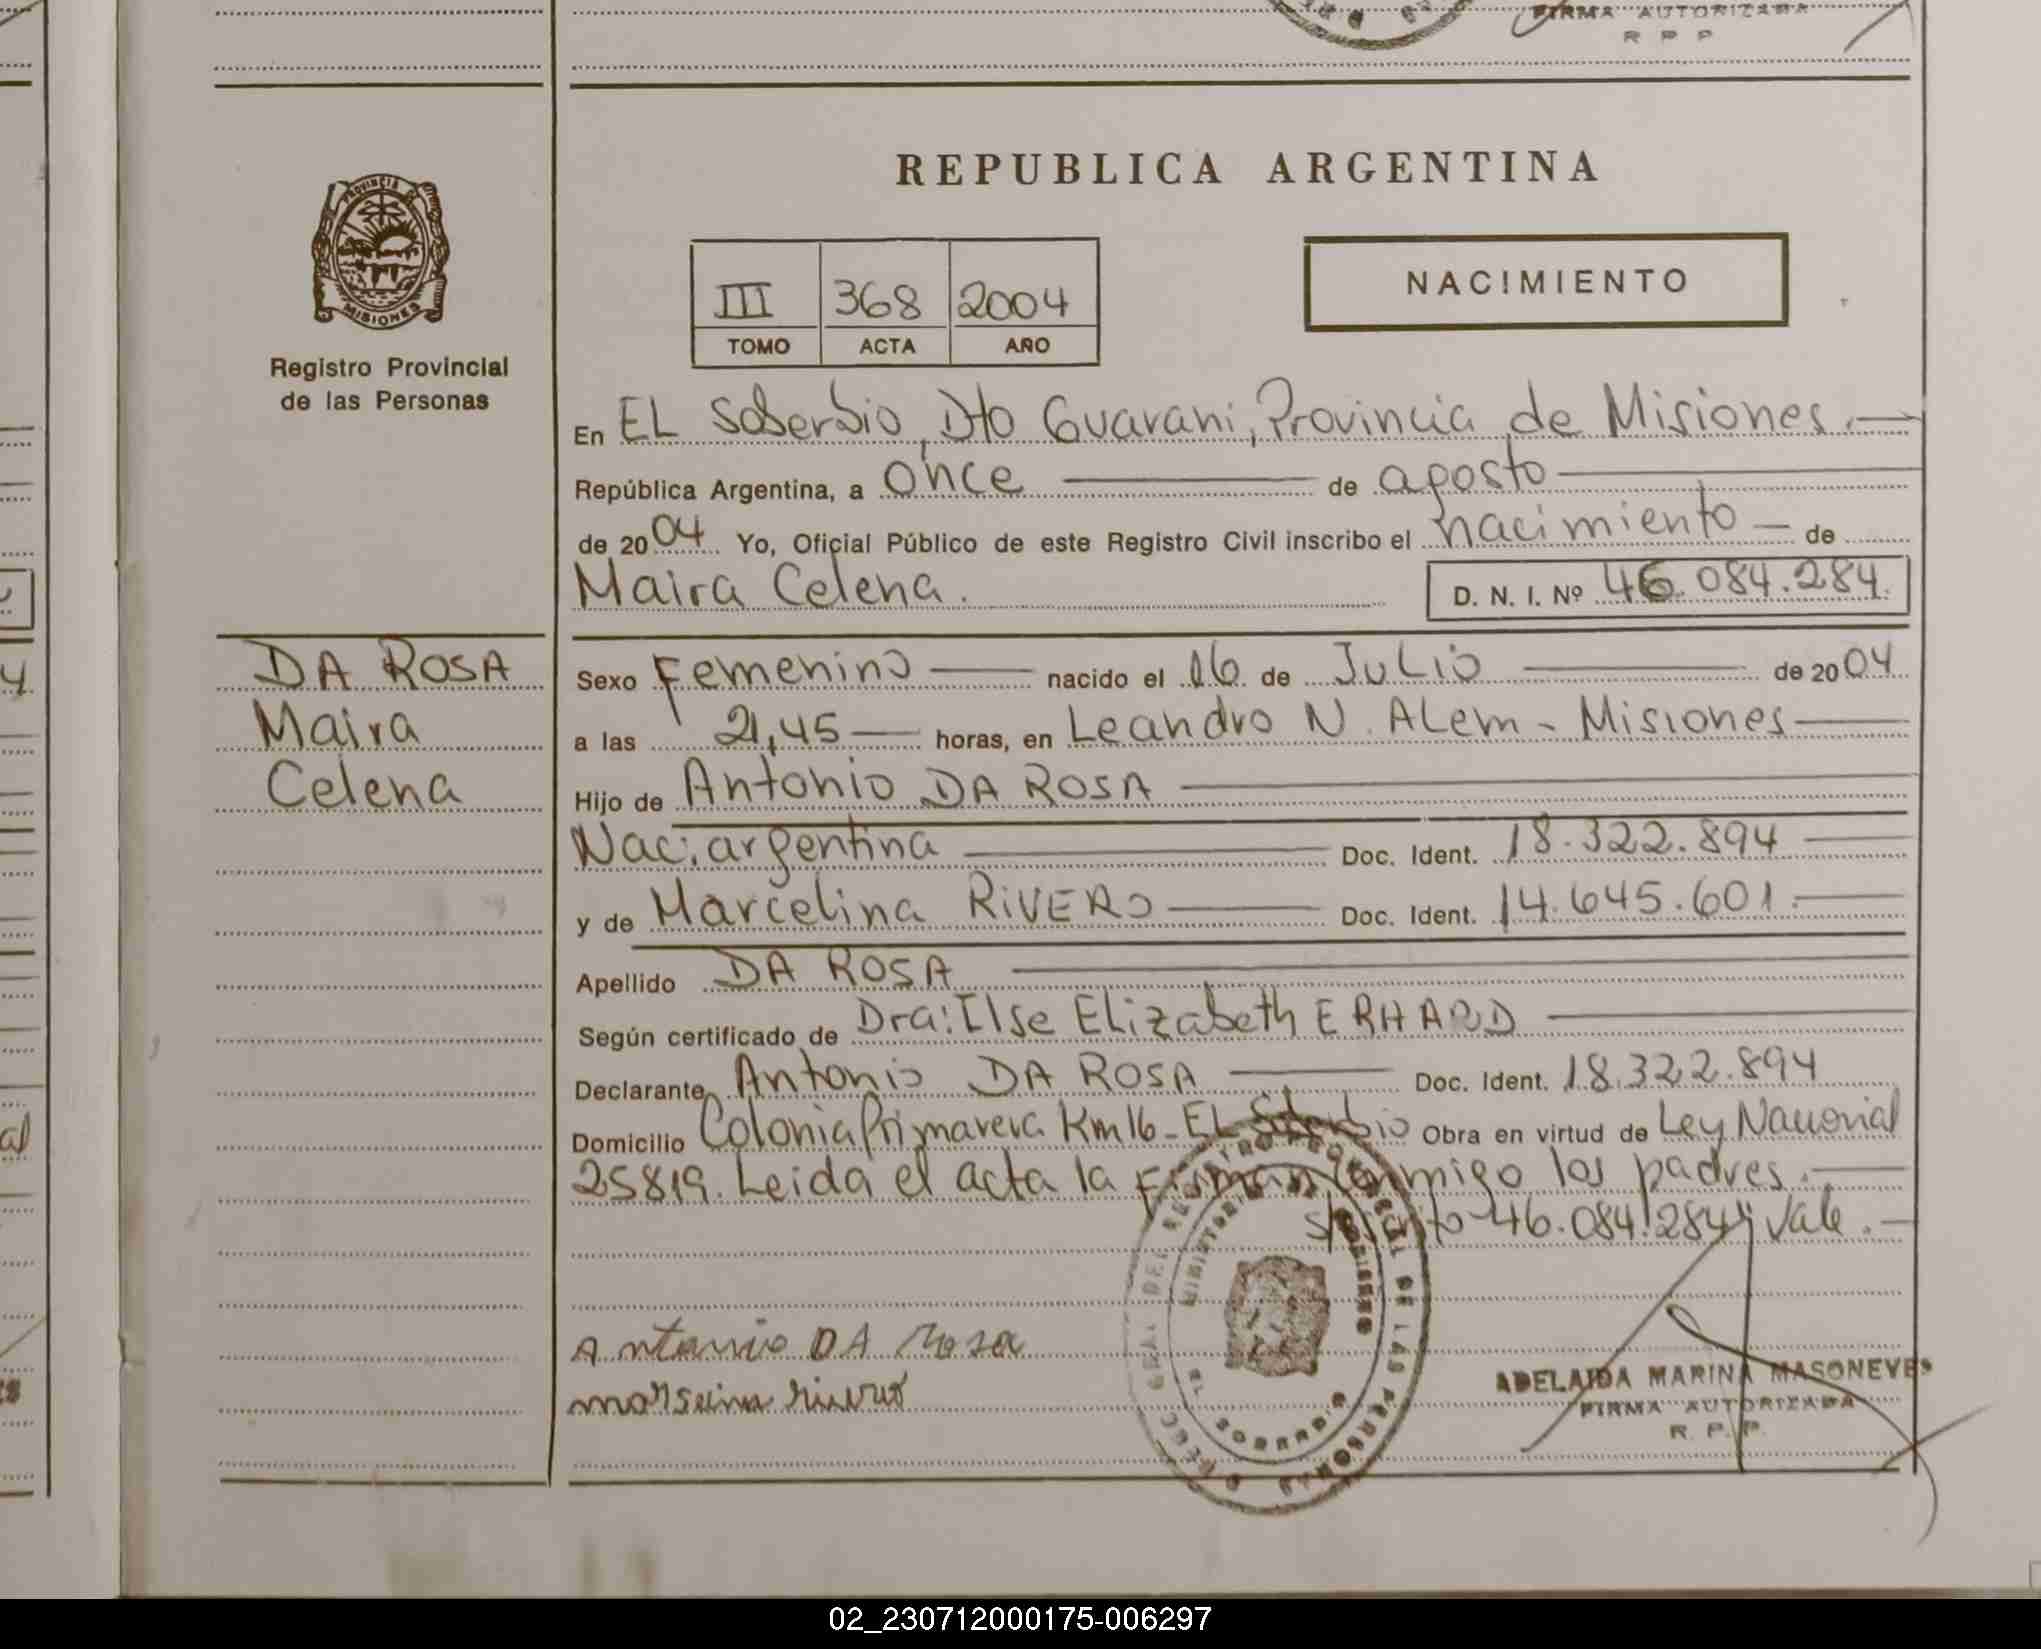 FIRMA AUTORIZADA
R P P
PROVINCIA DE
MISIONES
Registro Provincial
de las Personas
REPUBLICA ARGENTINA
III 368 2004
TOMO ACTA AÑO
NACIMIENTO
En EL Soberbio, Dto Guarani, Provincia de Misiones.
República Argentina, a once de agosto
de 2004 Yo, Oficial Público de este Registro Civil inscribo el nacimiento de
Maira Celena. D. N. I. Nº 46.084.284.
DA ROSA
Maira
Celena
Sexo Femenino nacido el 16 de JuLio de 2004
a las 21,45 horas, en Leandro N. ALem - Misiones
Hijo de Antonio DA ROSA
Nac: argentina Doc. Ident. 18.322.894
y de Marcelina RIVERO Doc. Ident. 14.645.601.
Apellido DA ROSA
Según certificado de Dra: Ilse Elizabeth ERHARD
Declarante Antonio DA ROSA Doc. Ident. 18.322.894
Domicilio Colonia Primavera Km 16 - EL Soberbio Obra en virtud de Ley Nacional
25819. Leida el acta la firman conmigo los padres.
46.084.284 Vale.
Antonio DA Rosa
ADELAIDA MARINA MASONEVES
FIRMA AUTORIZADA
R. P. P.
02_230712000175-006297